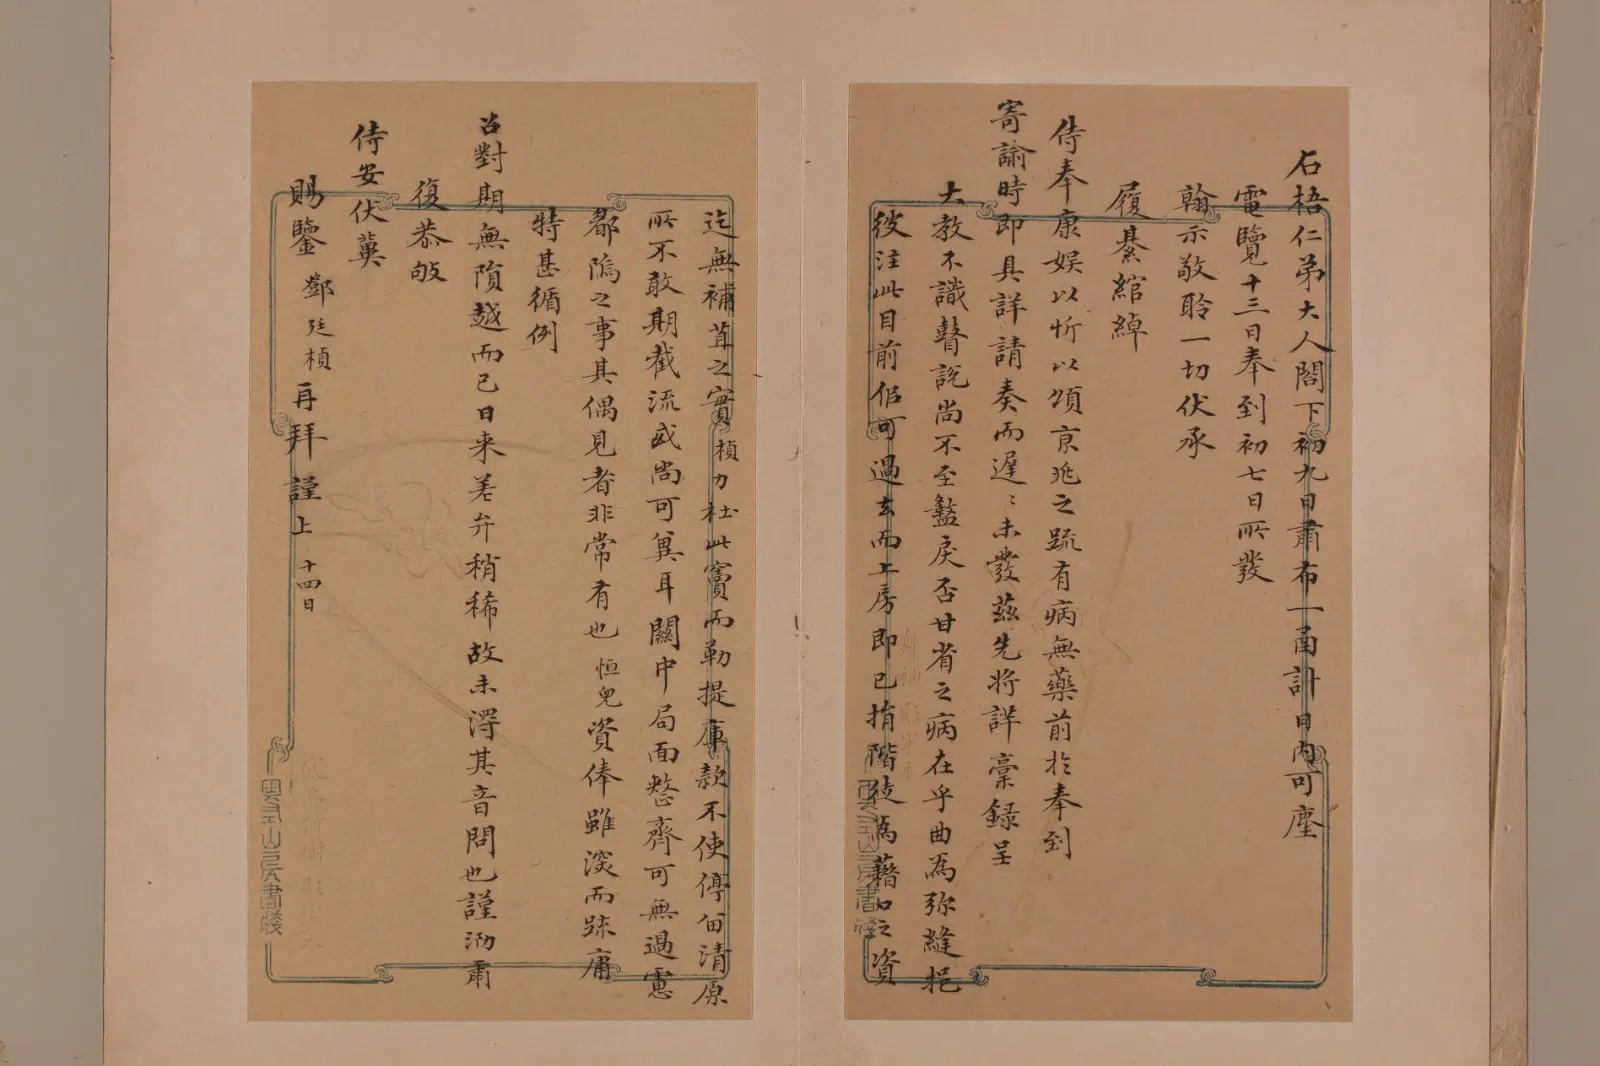 石梧仁弟大人閤下初九日肅布一函計日內可塵
電覽十三日奉到初七日所發
翰示敬聆一切伏承
履綦綰綽
侍奉康娛以忻以頌京兆之疏有病無藥前於奉到
寄諭時即具詳請奏而遲〻未發茲先將詳稾錄呈
大教不識瞽説尚不至盭戾否甘省之病在乎曲為弥縫挹
彼注此目前佀可過去而上房即已揹階𣥿為藉口之資
迄無補苴之實楨力杜此竇而勒提庫款不使停留清原
所不敢期截流或尚可兾耳關中局面整齊可無過慮
鄰隝之事其偶見者非常有也恒兒資俸雖深而疎庸
特甚循例
召對期無隕越而已日来差弁稍稀故未得其音問也謹泐肅
復恭敂
侍安伏冀
賜鑒 鄧廷楨再拜謹上 十四日